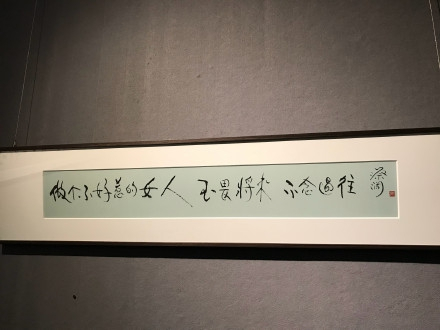 做个不好惹的女人 不畏将来 不念過往 蔡澜